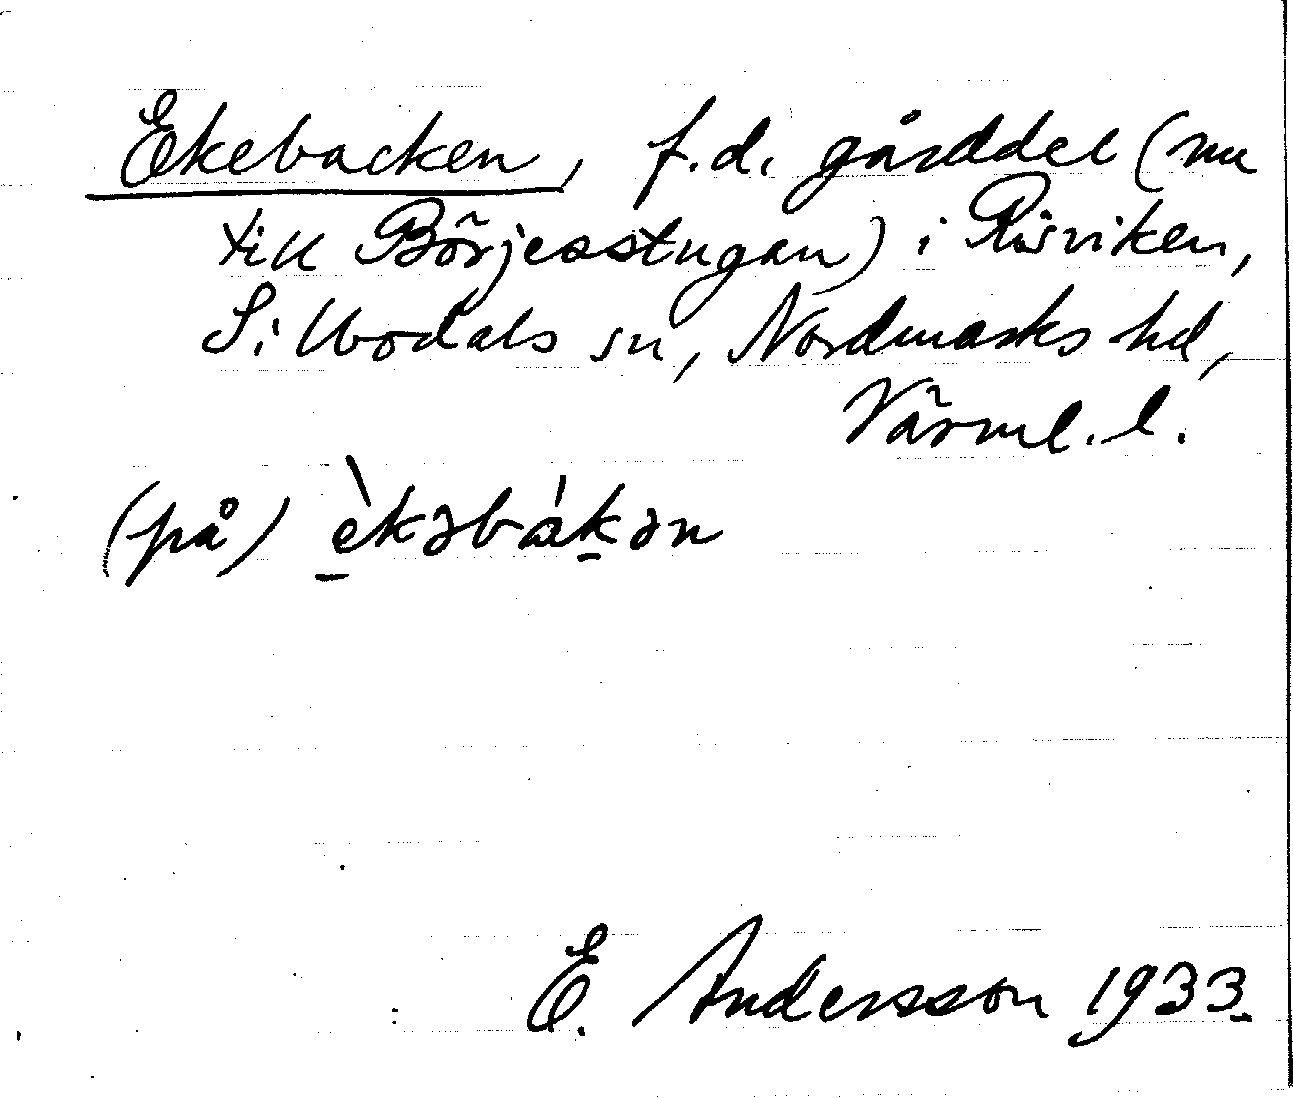 Ekebacken, f.d. gårddel (nu
till Börjesstugan) i Risviken,
Sillbodals sn, Nordmarks hd,
Värml. l.
(på) èkəbákən
E. Andersson 1933.